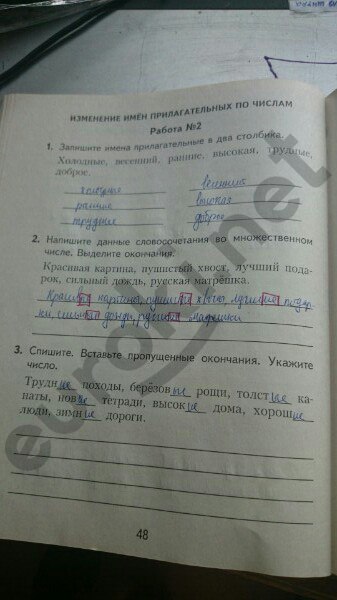 ИЗМЕНЕНИЕ ИМЁН ПРИЛАГАТЕЛЬНЫХ ПО ЧИСЛАМ
Работа №2
1. Запишите имена прилагательные в два столбика.
Холодные, весенний, ранние, высокая, трудные,
доброе.
холодные весенний
ранние высокая
трудные доброе
2. Напишите данные словосочетания во множественном
числе. Выделите окончания.
Красивая картина, пушистый хвост, лучший пода-
рок, сильный дождь, русская матрёшка.
Красивые картины, пушистые хвосты, лучшие подар-
ки, сильные дожди, русские матрёшки
3. Спишите. Вставьте пропущенные окончания. Укажите
число.
Трудные походы, берёзовые рощи, толстые ка-
наты, новые тетради, высокие дома, хорошие
люди, зимние дороги.
48
euroki.net